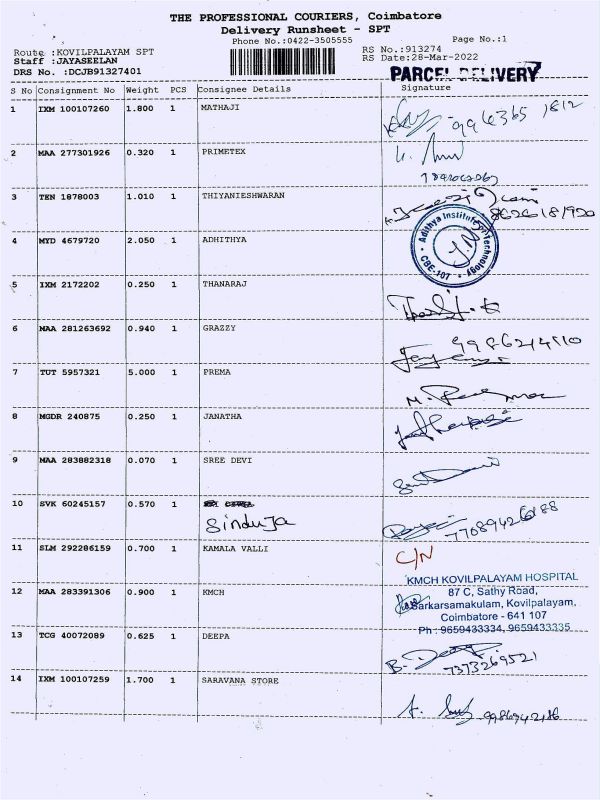 THE PROFESSIONAL COURIERS, Coimbatore
Delivery Runsheet - SPT
Phone No.:0422-3505555
Page No.:1
Route :KOVILPALAYAM SPT
RS No.:913274
Staff :JAYASEELAN
RS Date:28-Mar-2022
DRS No. :DCJB91327401
PARCEL DELIVERY
S No Consignment No Weight PCS Consignee Details Signature
1 IXM 100107260 1.800 1 MATHAJI
2 MAA 277301926 0.320 1 PRIMETEX
3 TEN 1878003 1.010 1 THIYANIESHWARAN
4 MYD 4679720 2.050 1 ADHITHYA
Adithya Institute of Technology
CBE-107
5 IXM 2172202 0.250 1 THANARAJ
6 MAA 281263692 0.940 1 GRAZZY
7 TUT 5957321 5.000 1 PREMA
8 MGDR 240875 0.250 1 JANATHA
9 MAA 283882318 0.070 1 SREE DEVI
10 SVK 60245157 0.570 1
Sinduja
11 SLM 292286159 0.700 1 KAMALA VALLI C/N
KMCH KOVILPALAYAM HOSPITAL
12 MAA 283391306 0.900 1 KMCH 87 C, Sathy Road,
Sarkarsamakulam, Kovilpalayam,
Coimbatore - 641 107
Ph : 9659433334, 9659433335
13 TCG 40072089 0.625 1 DEEPA
7373269521
14 IXM 100107259 1.700 1 SARAVANA STORE